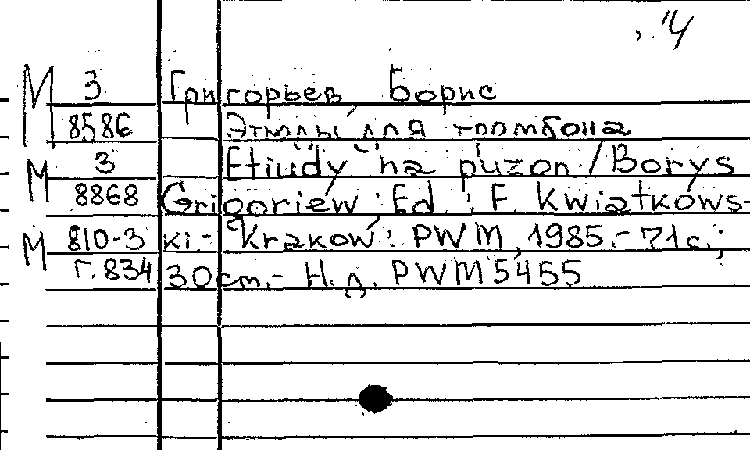 "4
М 3 Григорьев, Борис
8586 Этюды для тромбона
М 3 Etiudy na puzon / Borys
8868 Grigoriew ; Ed. : F. Kwiatkows-
М 810-3 ki.- Kraków : PWM, 1985.- 71 с.;
Г.834 30 cm.- Н.д. PWM 5455